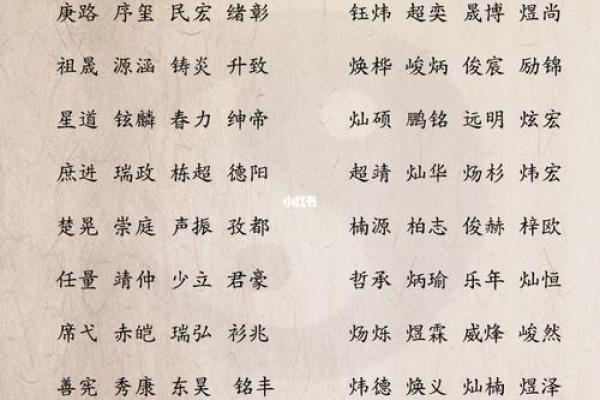 庚路 序玺 民宏 绪彰 钰炜 超奕 晟博 煜尚
祖晟 源涵 铸炎 升致 焕桦 峻炳 俊宸 励锦
星道 铉麟 春力 绅帝 灿硕 鹏铭 远明 炫宏
庶进 瑞政 栋超 德阳 超靖 灿华 炀杉 炜宏
小红书
楚晃 崇庭 声振 孜都 楠源 柏志 俊赫 梓欧
任量 靖仲 少立 君豪 哲承 炳瑜 乐年 灿恒
席弋 赤皑 瑞弘 衫兆 炀烁 煜霖 威烽 峻然
善宪 秀康 东昊 铭丰 炜德 焕义 灿楠 煜泽